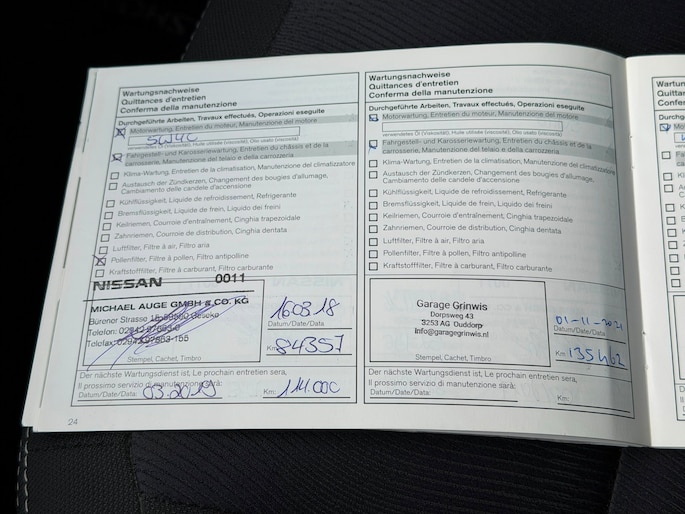 Wartungsnachweise
Quittances d'entretien
Conferma della manutenzione
Durchgeführte Arbeiten, Travaux effectués, Operazioni eseguite
Motorwartung, Entretien du moteur, Manutenzione del motore
5W40
verwendetes Öl (Viskosität), Huile utilisée (viscosité), Olio usato (viscosità)
Fahrgestell- und Karosseriewartung, Entretien du châssis et de la
carrosserie, Manutenzione del telaio e della carrozzeria
Klima-Wartung, Entretien de la climatisation, Manutenzione del climatizzatore
Austausch der Zündkerzen, Changement des bougies d'allumage,
Cambiamento delle candele d'accensione
Kühlflüssigkeit, Liquide de refroidissement, Refrigerante
Bremsflüssigkeit, Liquide de frein, Liquido dei freini
Keilriemen, Courroie d'entraînement, Cinghia trapezoidale
Zahnriemen, Courroie de distribution, Cinghia dentata
Luftfilter, Filtre à air, Filtro aria
Pollenfilter, Filtre à pollen, Filtro antipolline
Kraftstofffilter, Filtre à carburant, Filtro carburante
NISSAN 0011
MICHAEL AUGE GMBH & CO. KG
Bürener Strasse
Telefon:
Telefax:
Stempel, Cachet, Timbro
160818
Datum/Date/Data
Km: 84357
Der nächste Wartungsdienst ist, Le prochain entretien sera,
Il prossimo servizio di manutenzione sarà:
Datum/Date/Data: 03.2019 Km: 114000
24
Wartungsnachweise
Quittances d'entretien
Conferma della manutenzione
Durchgeführte Arbeiten, Travaux effectués, Operazioni eseguite
Motorwartung, Entretien du moteur, Manutenzione del motore
verwendetes Öl (Viskosität), Huile utilisée (viscosité), Olio usato (viscosità)
Fahrgestell- und Karosseriewartung, Entretien du châssis et de la
carrosserie, Manutenzione del telaio e della carrozzeria
Klima-Wartung, Entretien de la climatisation, Manutenzione del climatizzatore
Austausch der Zündkerzen, Changement des bougies d'allumage,
Cambiamento delle candele d'accensione
Kühlflüssigkeit, Liquide de refroidissement, Refrigerante
Bremsflüssigkeit, Liquide de frein, Liquido dei freini
Keilriemen, Courroie d'entraînement, Cinghia trapezoidale
Zahnriemen, Courroie de distribution, Cinghia dentata
Luftfilter, Filtre à air, Filtro aria
Pollenfilter, Filtre à pollen, Filtro antipolline
Kraftstofffilter, Filtre à carburant, Filtro carburante
Garage Grinwis
Dorpsweg 43
3253 AG Ouddorp
info@garagegrinwis.nl
Stempel, Cachet, Timbro
01-11-2021
Datum/Date/Data
Km: 135462
Der nächste Wartungsdienst ist, Le prochain entretien sera,
Il prossimo servizio di manutenzione sarà:
Datum/Date/Data: Km: